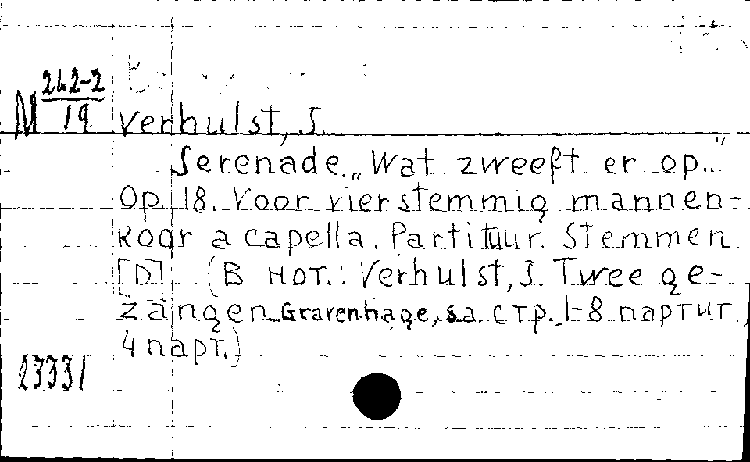 M 242-2
19
Verhulst, J.
Serenade. „Wat zweeft er op..."
Op 18. Voor vierstemmig mannen-
koor a capella. Partituur. Stemmen
[D] (В нот.: Verhulst, J. Twee ge-
zangen Gravenhage, s.a. стр. 1-8 партит,
4 парт.)
23331